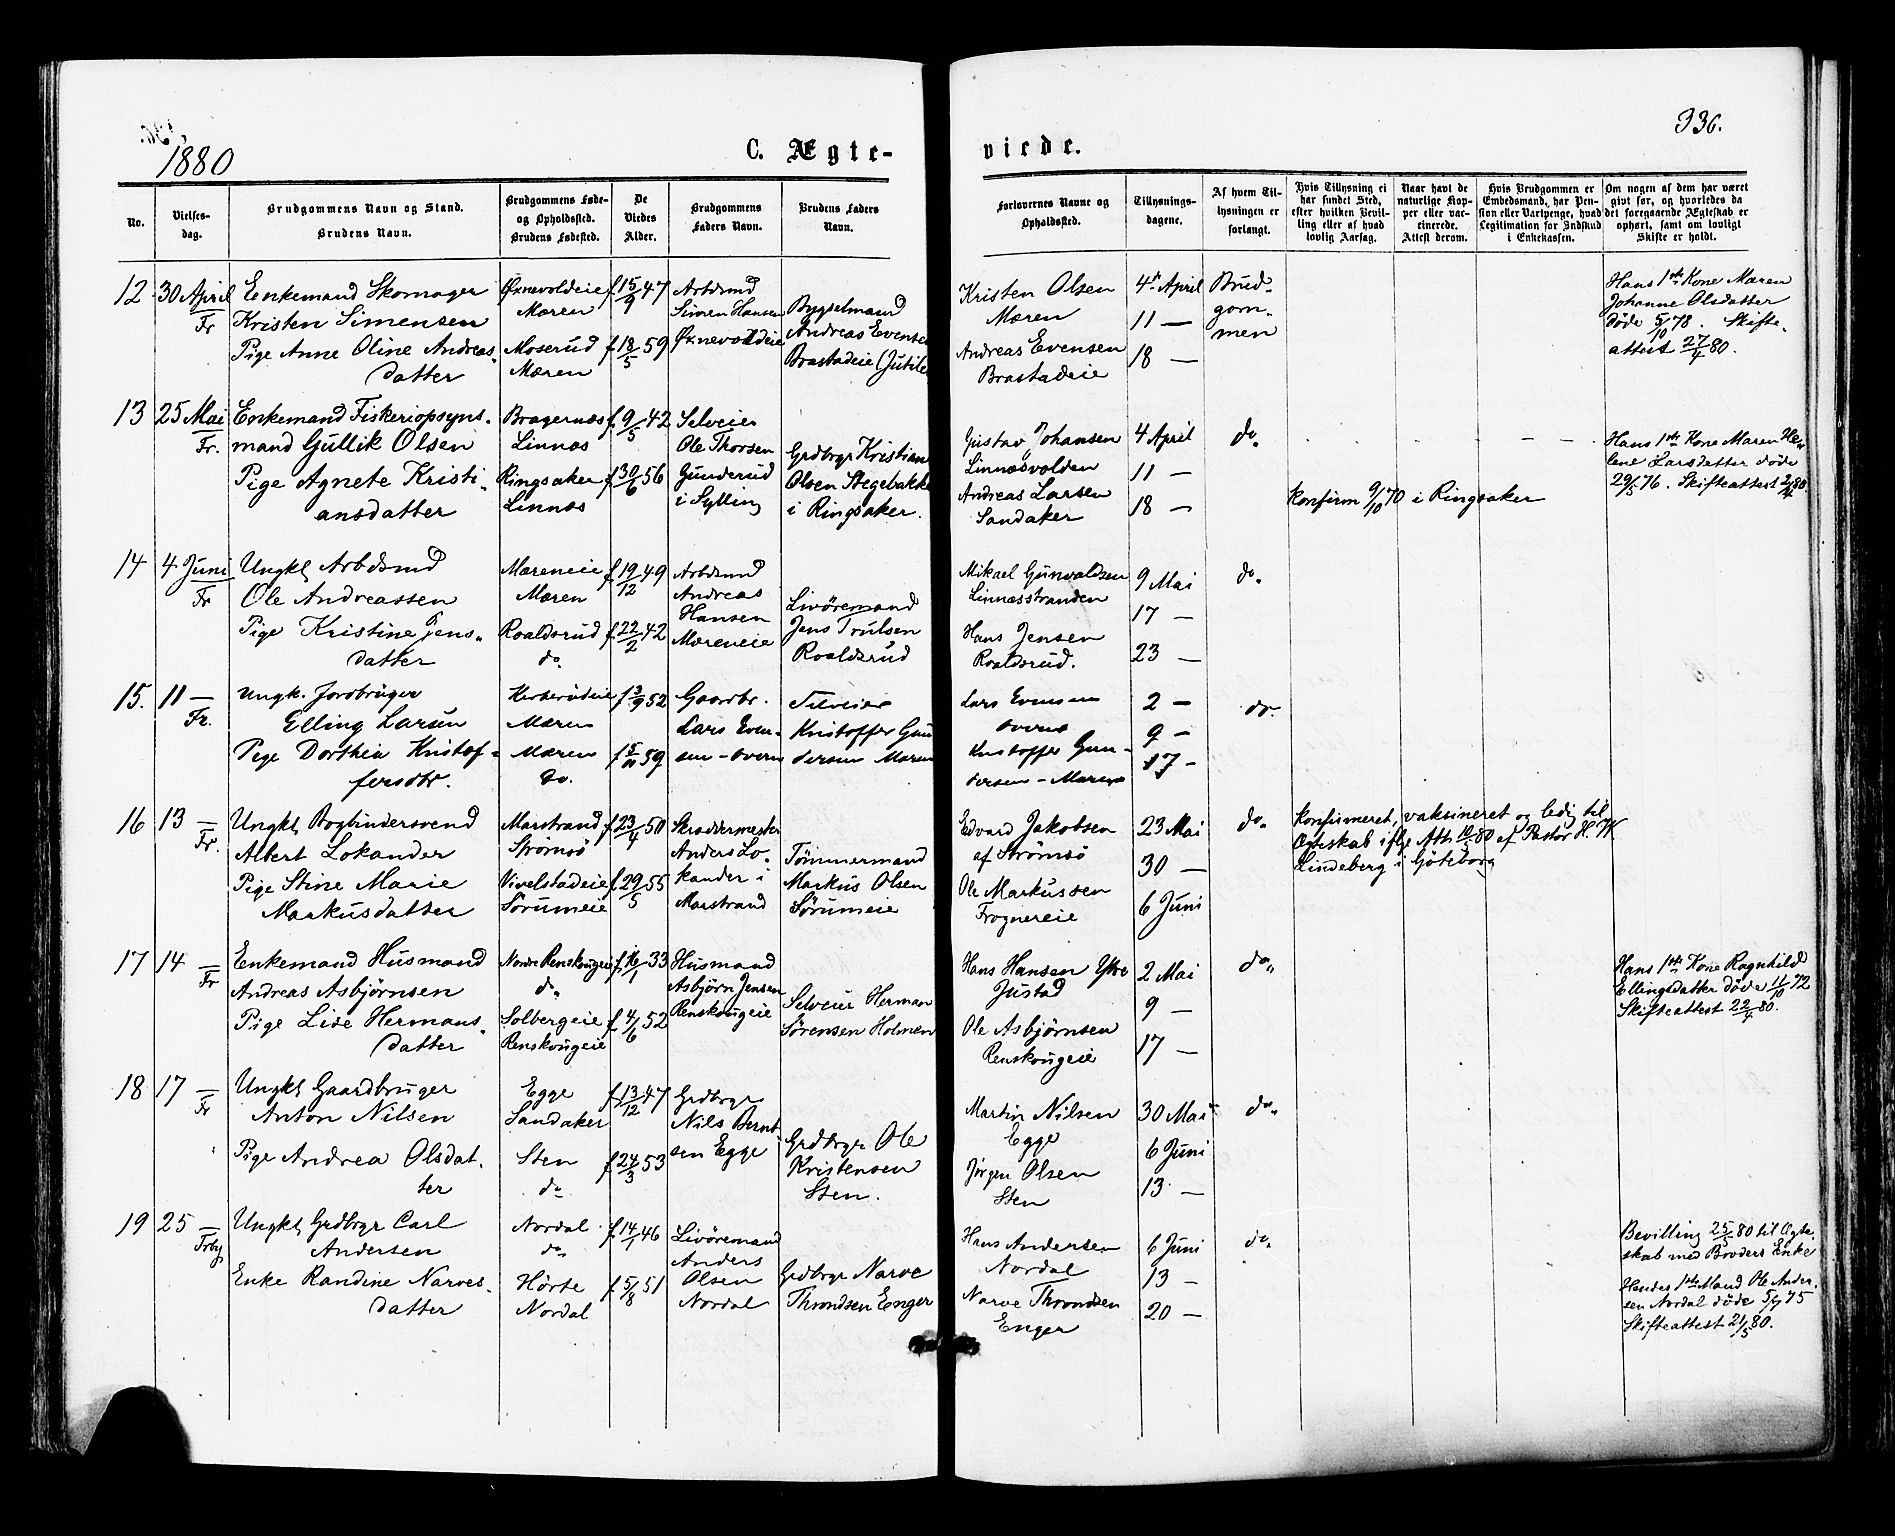 1880
C. Ægte-
viede.
336.
No.
Vielses-
dag.
Brudgommens Navn og Stand.
Brudens Navn.
Brudgommens Føde-
og Opholdssted.
Brudens Fødested.
De
Viedes
Alder.
Brudgommens
Faders Navn.
Brudens Faders
Navn.
Forlovernes Navne og
Opholdssted.
Tillysnings-
dagene.
Af hvem Til-
lysningen er
forlangt.
Hvis Tillysning ei
har fundet Sted,
efter hvilken Bevil-
ling eller af hvad
lovlig Aarsag.
Naar havt de
naturlige Kop-
per eller vac-
cinerede.
Attest derom.
Hvis Brudgommen er
Embedsmand, har Pen-
sion eller Vartpenge, hvad
Legitimation for Indskud
i Enkekassen.
Om nogen af dem har været
givt før, og hvorledes da
det foregaaende Ægteskab er
ophørt, samt om lovligt
Skifte er holdt.
12
30 April
Fr
Enkemand Skomager
Kristen Simensen
Pige Anne Oline Andreas-
datter
Øxnevoldeie
Mæren
Moserud
Mæren
f 15/9 47
f 18/5 59
Arbdsmd
Simen Hansen
Øxnevoldeie
Bygselmand
Andreas Evensen
Brastadeie
Kristen Olsen
Mæren
Andreas Evensen
Brastadeie
4de April
11 —
18 —
Brud-
gom-
men
Hans 1ste Kone Maren
Johanne Olsdatter
døde 5/10 78. Skifte-
attest 27/4 80.
13
25 Mai
Fr.
Enkemand Fiskeriopsyns-
mand Gullik Olsen
Pige Agnete Kristi-
ansdatter
Bragernæs
Linnæs
Ringsaker
Linnæs
f 9/5 42
f 30/6 56
Selveier
Ole Thorsen
Gunderud
i Sylling
Grdbrgr Kristian
Olsen Stegebakke
i Ringsaker.
Gustav Johansen
Linnæsvolden
Andreas Larsen
Sandaker
4 April
11 —
18 —
do.
Konfirm 9/10 70 i Ringsaker
Hans 1ste Kone Maren He-
lene Larsdatter døde
29/5 76. Skifteattest
14
4 Juni
Fr
Ungkl Arbdsmd
Ole Andreassen
Pige Kristine Jens-
datter
Mæreneie
Mæren
Roaldsrud
do.
f 19/12 49
f 22/2 42
Arbdsmd
Andreas
Hansen
Mæreneie
Livøremand
Jens Trulsen
Roaldsrud
Mikael Gunvaldsen
Linnæsstranden
Hans Jensen
Roaldsrud.
9 Mai
17 —
23 —
do.
15.
11 —
Fr.
Ungk. Jordbruger
Elling Larsen
Pige Dorthea Kristof-
fersdtr.
Kirkerudeie
Mæren
Mæren
do.
f 3/9 52
f 5/11 59
Gaardbr.
Lars Even-
sen - Overn
Selveier
Kristoffer Gun-
dersen Maren
Lars Evensen
Overn
Kristoffer Gun-
dersen - Maren
2 —
9 —
17 —
do.
16
13 —
Fr.
Ungkl Bogbindersvend
Albert Lokander
Pige Stine Marie
Markusdatter
Marstrand
Strømsø
Vivelstadeie
Sørumeie
f 23/4 50
f 29/5 55
Skræddermester
Anders Lo-
kander i
Marstrand
Tømmermand
Markus Olsen
Sørumeie
Edvard Jakobsen
af Strømsø
Ole Markussen
Frognereie
23 Mai
30 —
6 Juni
do.
Konfirmeret, vaksineret og ledig til
Ægteskab iflge Att. 10/5 80 af Pastor H. W
Lindeberg i Göteborg
17
14 —
Fr
Enkemand Husmand
Andreas Asbjørnsen
Pige Lise Hermans-
datter
Nordre Renskougeie
do.
Solbergeie
Renskougeie
f 16/1 33
f 4/6 52
Husmand
Asbjørn Jensen
Renskougeie
Selveier Herman
Sørensen Holmen
Hans Hansen Ytre
Justad
Ole Asbjørnsen
Renskougeie
2 Mai
9 —
17 —
do.
Hans 1ste Kone Ragnhild
Ellingsdatter døde 11/10 72
Skifteattest 22/4 80.
18
17 —
Fr
Ungkl Gaardbruger
Anton Nilsen
Pige Andrea Olsdat-
ter
Egge
Sandaker
Sten
do
f 13/12 47
f 24/3 53
Grdbrgr
Nils Bernt
sen Egge
Grdbrgr Ole
Kristensen
Sten.
Martin Nilsen
Egge
Jørgen Olsen
Sten
30 Mai
6 Juni
13 —
do.
19
25 —
Frby
Ungkl Grdbrgr Carl
Andersen
Enke Randine Narves-
datter
Nordal
do.
Hørte
Nordal
f 14/1 46
f 5/8 51
Livøremand
Anders
Olsen
Nordal
Grdbrgr Narve
Throndsen Enger
Hans Andersen
Nordal
Narve Throndsen
Enger
6 Juni
13 —
20 —
do.
Bevilling 25/5 80 til Ægte-
skab med Broders Enke
Hendes 1ste Mand Ole Ander-
sen Nordal døde 5/4 75
Skifteattest 21/5 80.